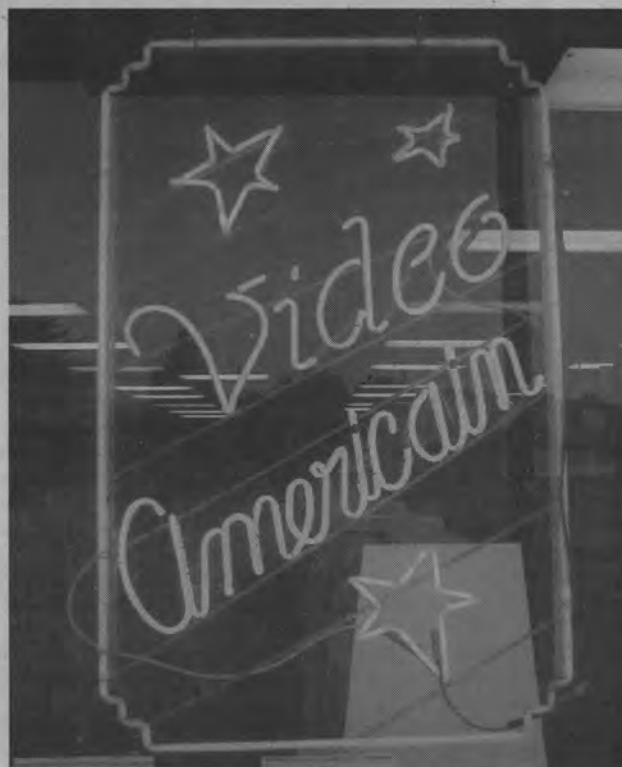 Video
Americain